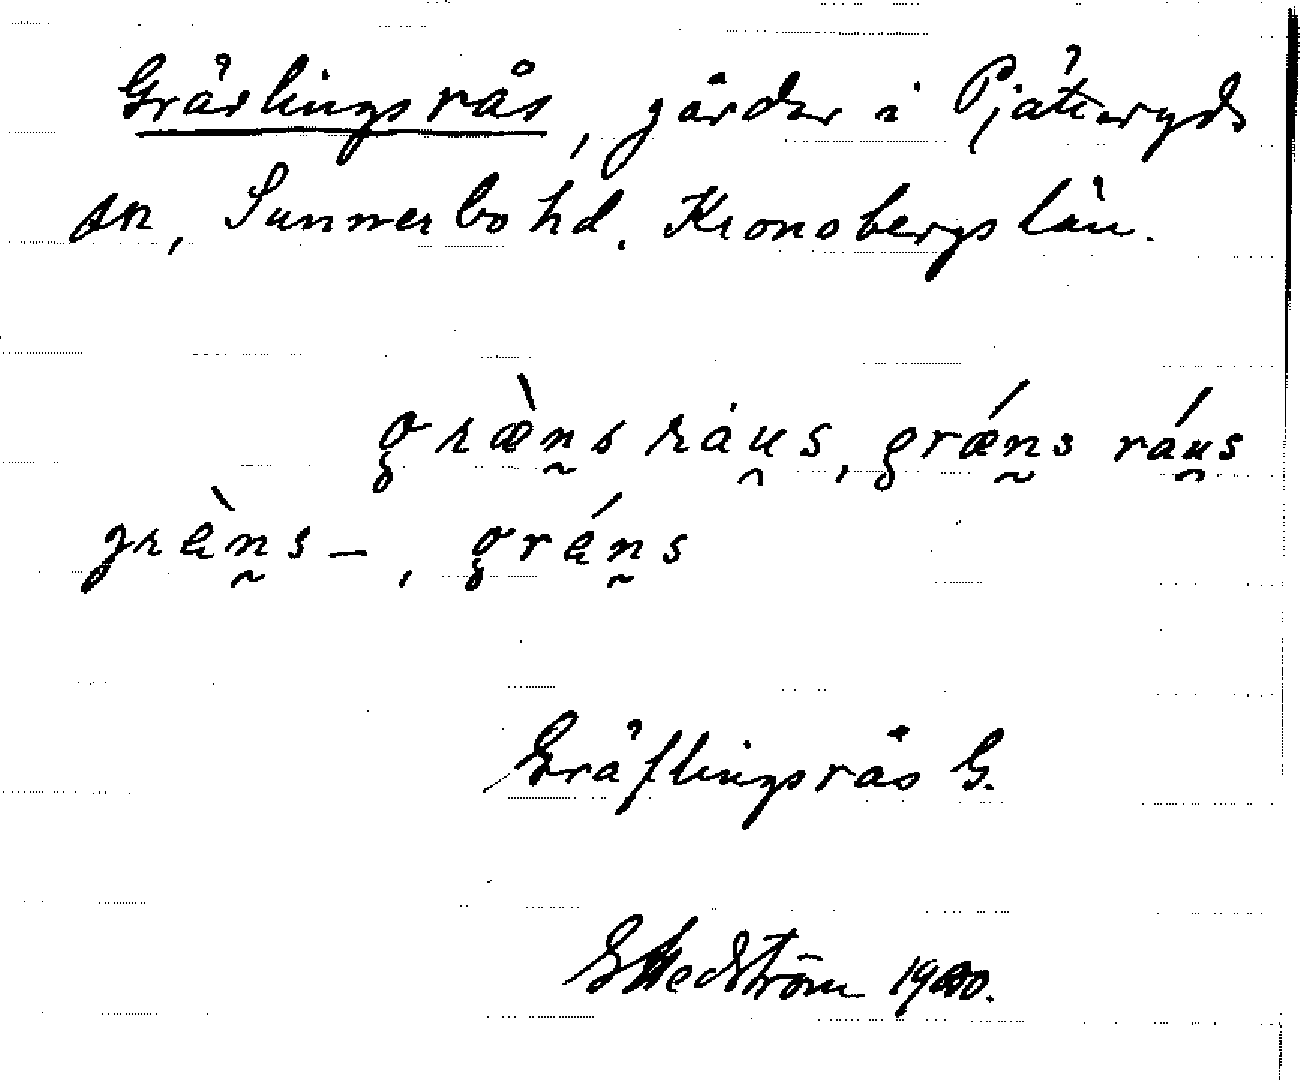 Grävlingsrås, gårdar i Pjätteryds
sn, Sunnerbo hd. Kronobergs län.
græ̀n̰s ráu̯s, grǽn̰s ráu̯s
grèn̰s –, grén̰s
Gräflingsrås G.
G Hedström